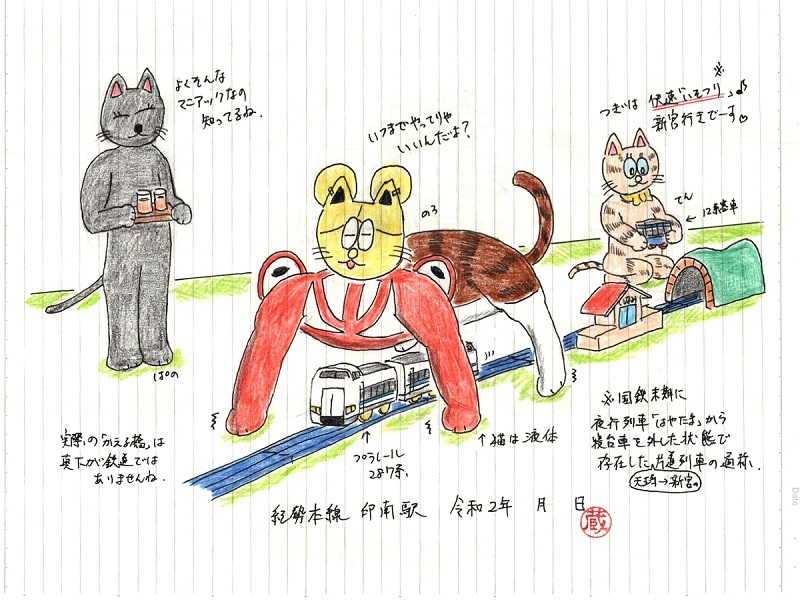 よくそんな
マニアックなの
知ってるね.
いつまでやってりゃ
いいんだよ?
つぎは 快速"いそつり"♪
新宮行きでーす
のろ
てん
← 12系客車
ぱの
実際の「かえる橋」は
真下が鉄道では
ありませんね.
↑
プラレール
287系.
↑猫は液体
※国鉄末期に
夜行列車「はやたま」から
寝台車を外した状態で
存在した片道列車の通称.
天王寺→新宮
紀勢本線 印南駅 令和2年 月 日
蔵
Date